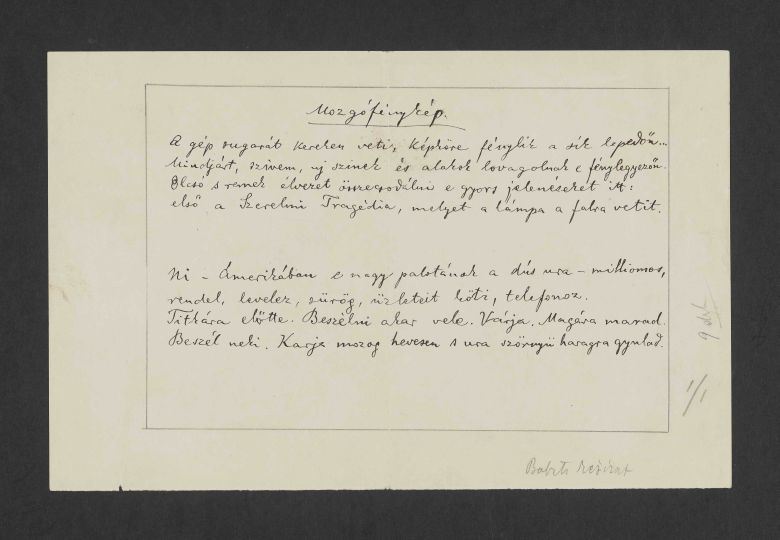 Mozgófénykép.
A gép sugarát kereken veti, képköre fénylik a sík lepedőn...
Mindjárt, szivem, uj szinek és alakok lovagolnak e fénylegyezőn.
Olcsó s remek élvezet összecsodálni e gyors jelenéseket itt:
első a Szerelmi Tragédia, melyet a lámpa a falra vetit.
Ni – Amerikában e nagy palotának a dús ura – milliomos,
rendel, levelez, sürög, üzleteit köti, telefonoz.
Titkára előtte. Beszélni akar vele. Várja. Magára marad.
Beszél neki. Karja mozog hevesen s ura szörnyü haragra gyulad.
1/1
9 drb
Babits kézirat